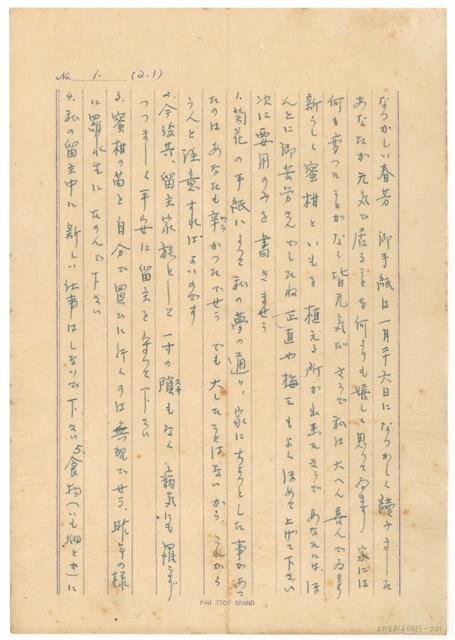 No. 1. (2.1)
なつかしい春芳 御手紙は一月二十六日になつかしく読みました
あなたが元気で居ることを何よりも嬉しく思つてゐます 家には
何も変つたことがなく皆元気ださうで私は大へん喜んでゐます
新らしく蜜柑といもを植える所が出来たさうで あなたにはほ
んとに御苦労さんでしたね 正直や梅子もよくほめて上げて下さい
次に要用のみを書きませう
1. 菊花の手紙によつて私の夢の通り、家にちよつとした事があつ
たのはあなたも辛かつたでせう でも大したことはないから、これから
うんと注意すればよいのです
2. 今後共、留主家族として一寸の隙もなく、病気にも羅らず
つつましく平安に留主を守つて下さい
3. 蜜柑の苗を自分で買ひに行くのは無理でせう、昨年の様
に 先生にたのんで下さい
4. 私の留主中に新しい仕事はしないで下さい 5. 食物(いも畑とか)に
PAU TSOE BRAND